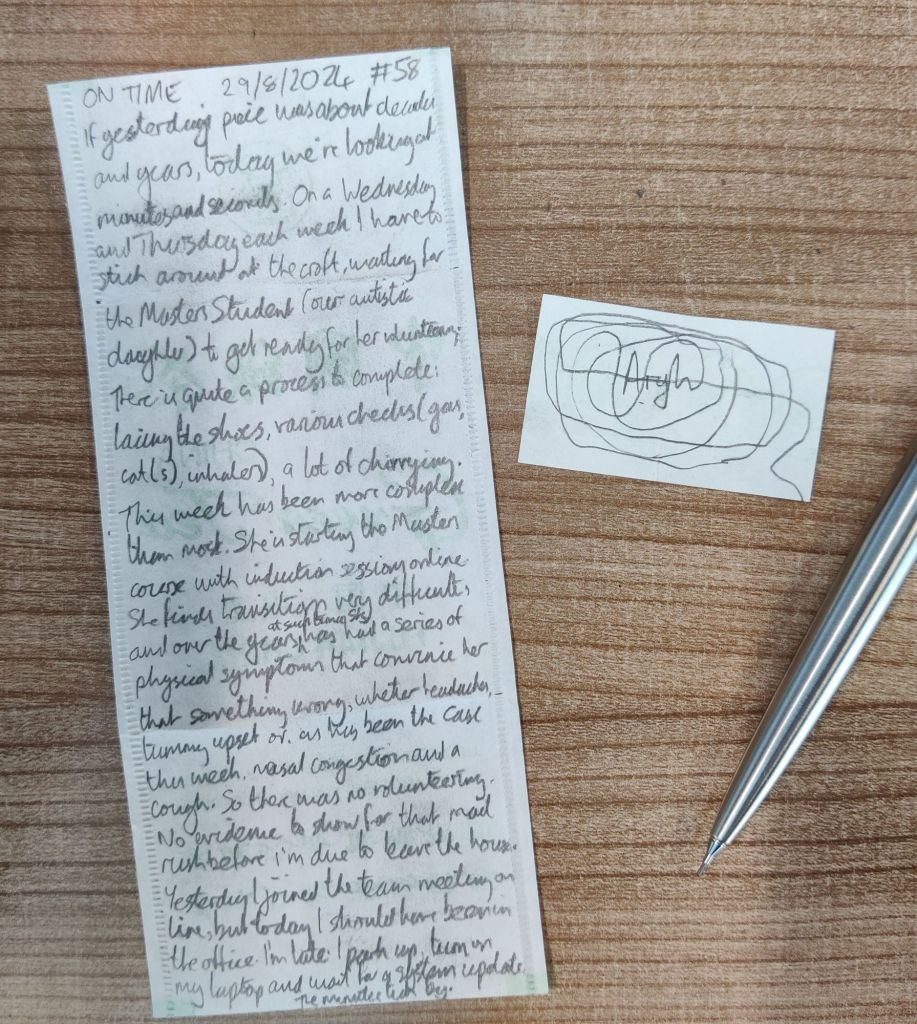 ON TIME 29/8/2024 #58
If yesterdays piece was about decades
and years, today we're looking at
minutes and seconds. On a Wednesday
and Thursday each week I have to
stick around at the croft, waiting for
the Masters Student (our autistic
daughter) to get ready for her volunteering;
There is quite a process to complete:
lacing the shoes, various checks (gas,
cat(s), inhaler), a lot of chivvying.
This week has been more complex
than most. She is starting the Masters
course with induction sessions online.
She finds transitions very difficult,
and over the years, at such times she has had a series of
physical symptoms that convince her
that something wrong, whether headaches,
tummy upset or, as has been the case
this week, nasal congestion and a
cough. So there was no volunteering.
No evidence to show for that mad
rush before i'm due to leave the house.
Yesterday I joined the team meeting on
line, but today I should have been in
the office. I'm late. I park up, turn on
my laptop and wait for a system update.
The minutes tick by.
Argh